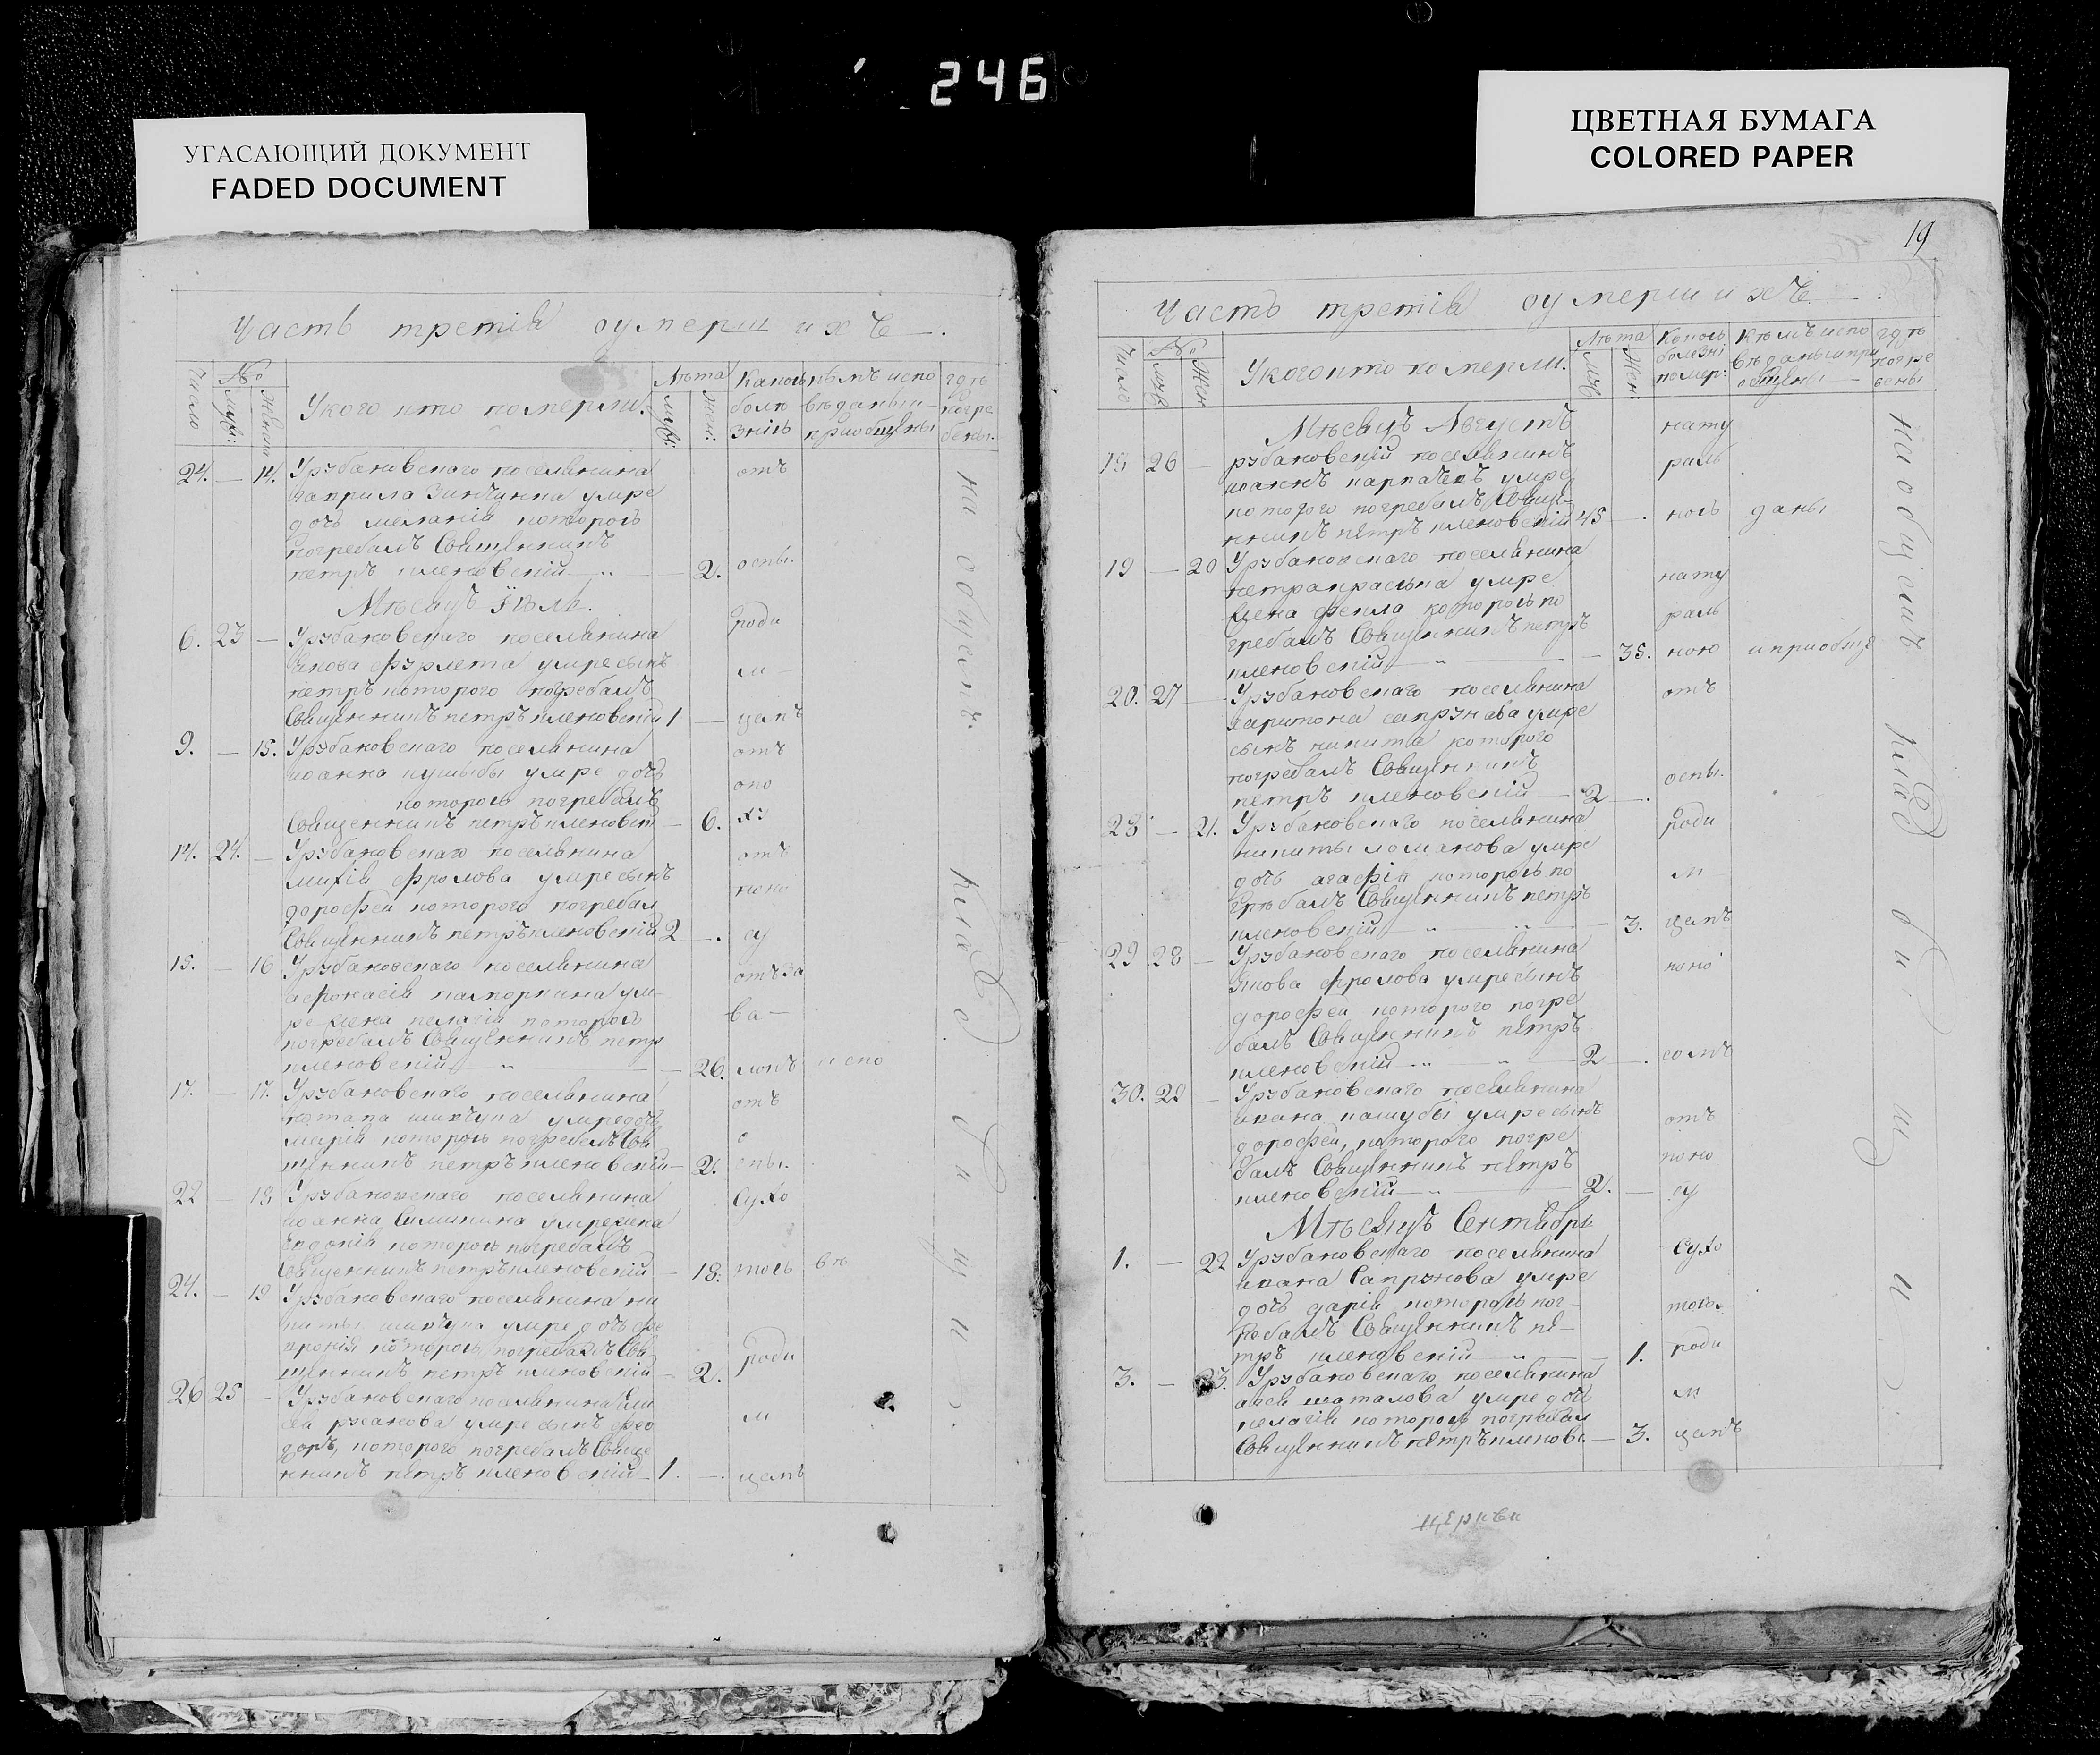 246
УГАСАЮЩИЙ ДОКУМЕНТ
FADED DOCUMENT
ЦВЕТНАЯ БУМАГА
COLORED PAPER
Часть третія оумершихъ
Число
№
муж:
женска
У кого кто померли.
Лѣта
муж:
жен:
Какою болѣзнію
кѣмъ испо
вѣданы и
приобщены
гдѣ
погре
бены.
24. — 14. Урзбановскаго поселянина
гаврила Зинчинка умре
дочь меланія которою
погребалъ Священникъ
петръ кленовскій — 2.
отъ
оспы.
Мѣсяцъ Іюль.
6. 23 — Урзбановскаго поселянина
якова фурлета умре сынъ
петръ которого погребалъ
Священникъ петръ кленовскій 1 —
роди
м —
цапъ
9. — 15. Урзбановскаго поселянина
иоанна кулыбы умре дочь
которою погребалъ
Священникъ петръ кленовскі — 6.
отъ
опо
ху
14. 24. — Урзбановскаго поселянина
михія фролова умре сынъ
дорофей которого погребал
Священникъ петръ кленовскій 2 — .
отъ
поно
су
15. — 16 Урзбановскаго поселянина
афонасія умре
жена пелагія которою
погребалъ Священникъ петр
кленовскій — 26.
отъ за
ва —
локъ
испо
17. — 17. Урзбановскаго поселянина
потапа шивчуна умре дочь
марія которою погребалъ Свя
щенникъ петръ кленовскій — 2.
отъ
о
спы.
22 — 18 Урзбановскаго поселянина
иоанна Симикина умре жена
евдокія которою погребалъ
Священникъ петръ кленовскій — 18.
сухо
тою
вѣ
24. — 19 Урзбановскаго поселянина ни
киты шивчуна умре дочь фев
ронія которою погребалъ Свя
щенникъ петръ кленовскій — 2.
26 25 — Урзбановскаго поселянина ели
сея рязанова умре сынъ фео
доръ, которого погребалъ Свяще
нникъ петръ кленовскій — 1. — .
роди
м
цапъ
на общемъ кладбищи.
19
Часть третія оумершихъ
Число
№
муж
Жен
У кого кто померли.
Лѣта
муж
Жен:
Какою
болезні
помер:
Кѣмъ испо
вѣданы и при
общены
гдѣ
погре
бены
Мѣсяцъ Августъ
19 26 — рзбановскій поселянинъ
иоаннъ умре
которого погребалъ Свяще
нникъ петръ кленовскій 45 — .
нату
раль
ною
даны
19 — 20 Урзбановскаго поселянина
петра красьна умре
жена фекла которою по
гребалъ Священникъ петръ
кленовскій — 35.
нату
раль
ною
и приобще
20. 27 — Урзбановскаго поселянина
харитона сапрунова умре
сынъ никита которого
погребалъ Священникъ
петръ кленовскій — 2 — .
отъ
оспы.
28 — 21. Урзбановскаго поселянина
никиты ломанова умре
дочь агафія которою по
гребалъ Священникъ петръ
кленовскій — 3.
роди
м
цапъ
29 28 — Урзбановскаго поселянина
якова фролова умре сынъ
дорофей которого погре
балъ Священникъ петръ
кленовскій — 2 — .
поно
сомъ
30. 29 — Урзбановскаго поселянина
ивана кашубы умре сынъ
дорофей, которого погре
балъ Священникъ петръ
кленовскій — 2. —
отъ
поно
су
Мѣсяцъ Сентябрь
1. — 22 Урзбановскаго поселянина
ивана Сапрунова умре
дочь дарія которою пог-
ребалъ Священникъ пе—
тръ кленовскій — 1.
Сухо
тою.
3. — 23. Урзбановскаго поселянина
шаталова умре дочь
пелагія которою погребал
Священникъ петръ кленовс. — 3.
роди
м
цапъ
на общемъ кладбищи